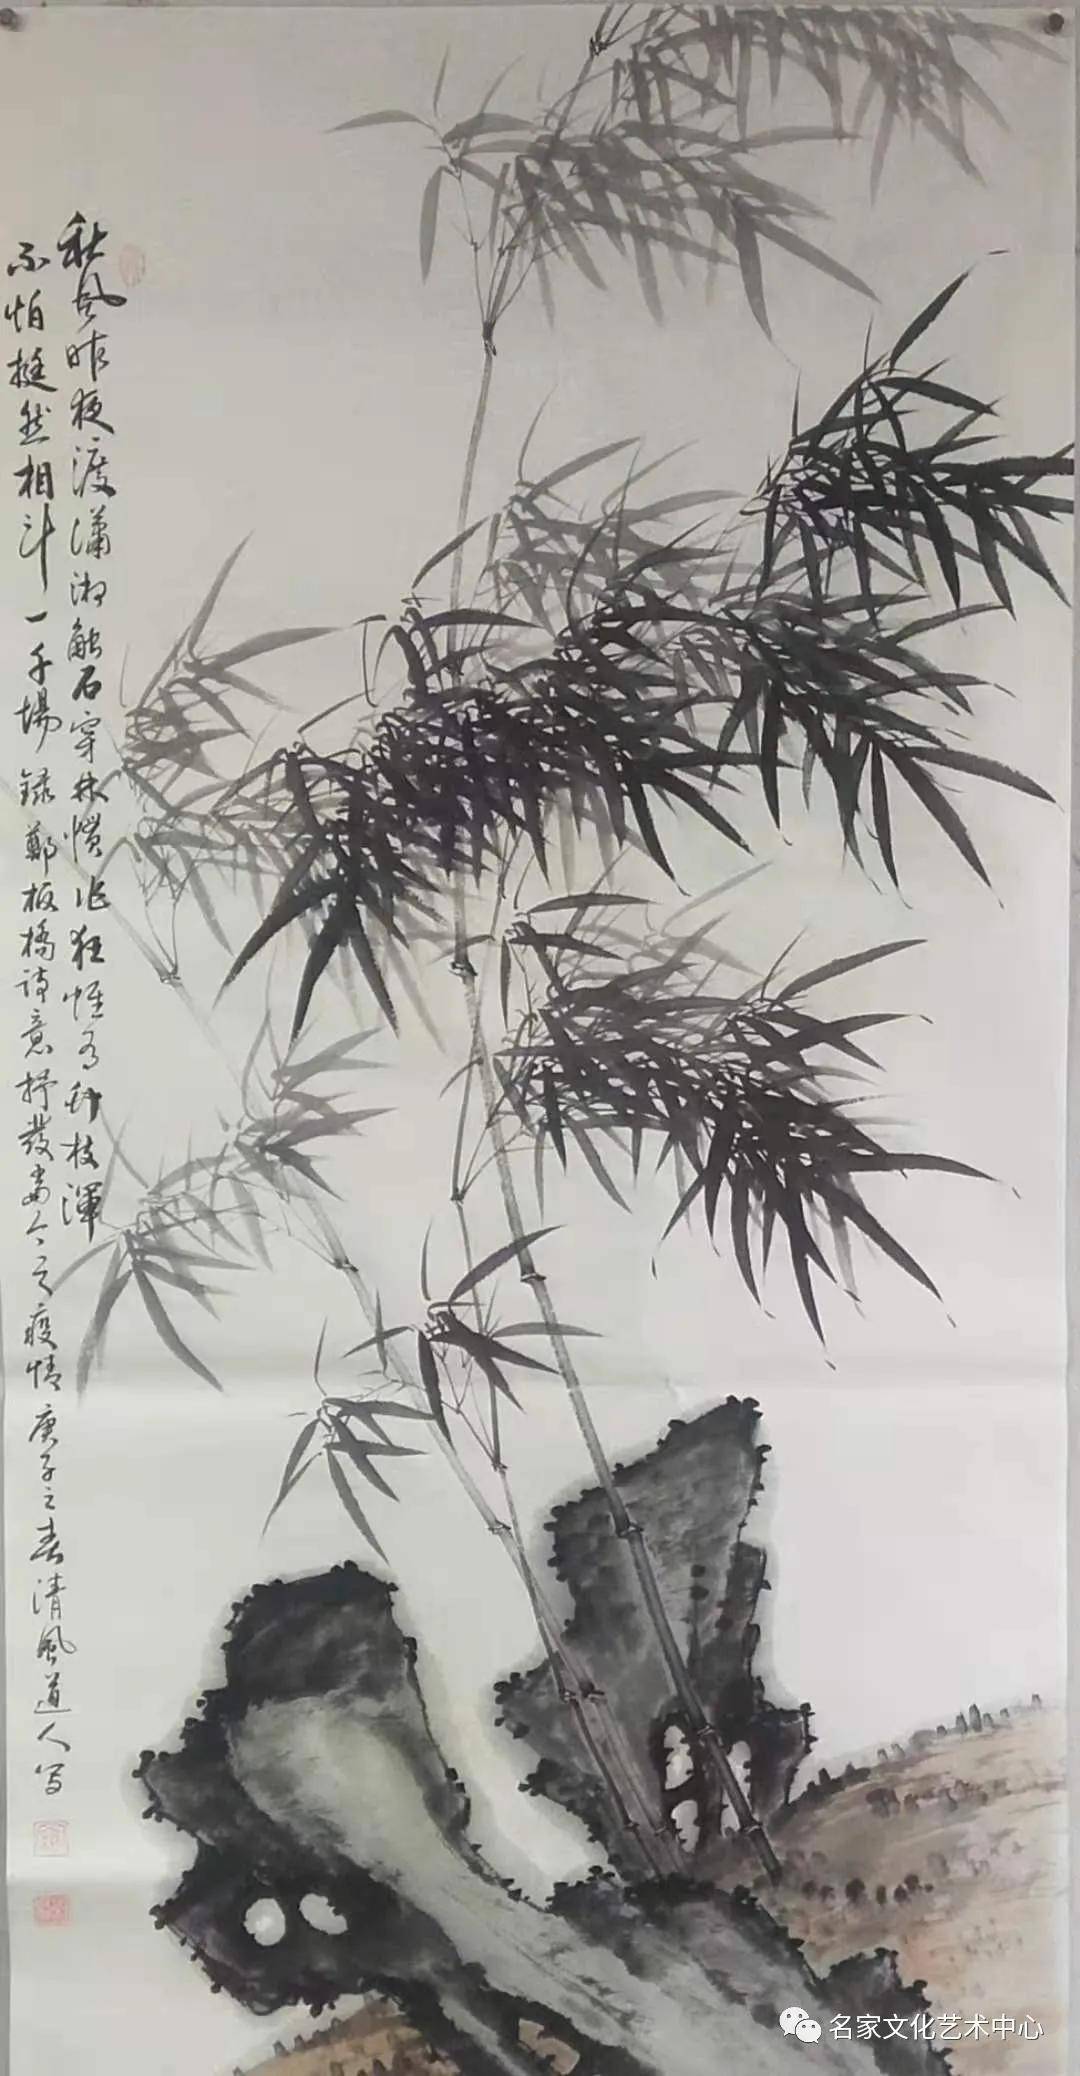 秋风昨夜渡潇湘触石穿林惯作狂惟有竹枝浑
不怕挺然相斗一千场 录郑板桥诗意抒发当今之疫情 庚子之春清风道人写
名家文化艺术中心